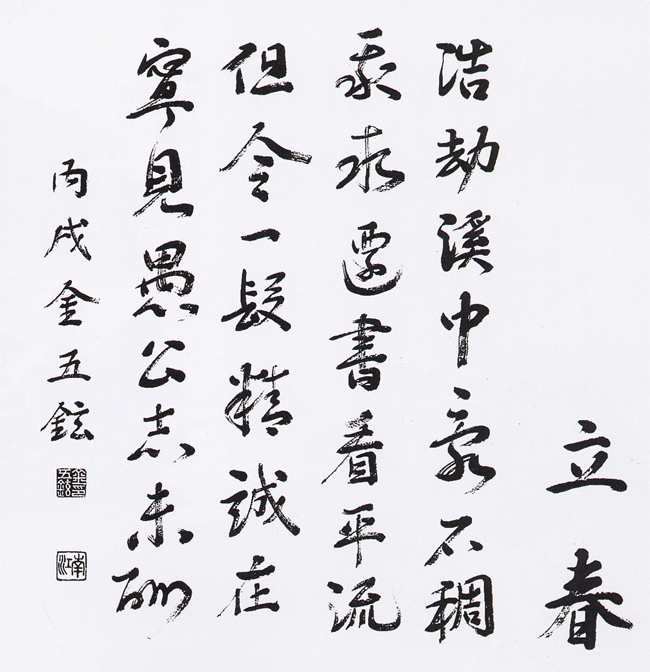 立春
浩劫溪中不稠
水遷書看平流
但令一段精誠在
寧見愚公志未酬
丙戌金五鉉
南江